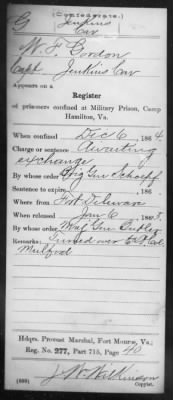 (Confederate.)
G Jenkins Cav
W. F. Gordon
Capt. Jenkins Cav
Appears on a
Register
of prisoners confined at Military Prison, Camp
Hamilton, Va.
When confined Dec 6, 1864.
Charge or sentence Awaiting
exchange
By whose order Brig Gen Schoepf
Sentence to expire , 186 .
Where from Fort Delaware
When released Jan 6, 1865.
By whose order Maj Gen Butler
Remarks: Turned over to Col
Mulford
Hdqrs. Provost Marshal, Fort Monroe, Va.;
Reg. No. 277, Part 715, Page 40
J W Wilkinson
Copyist.